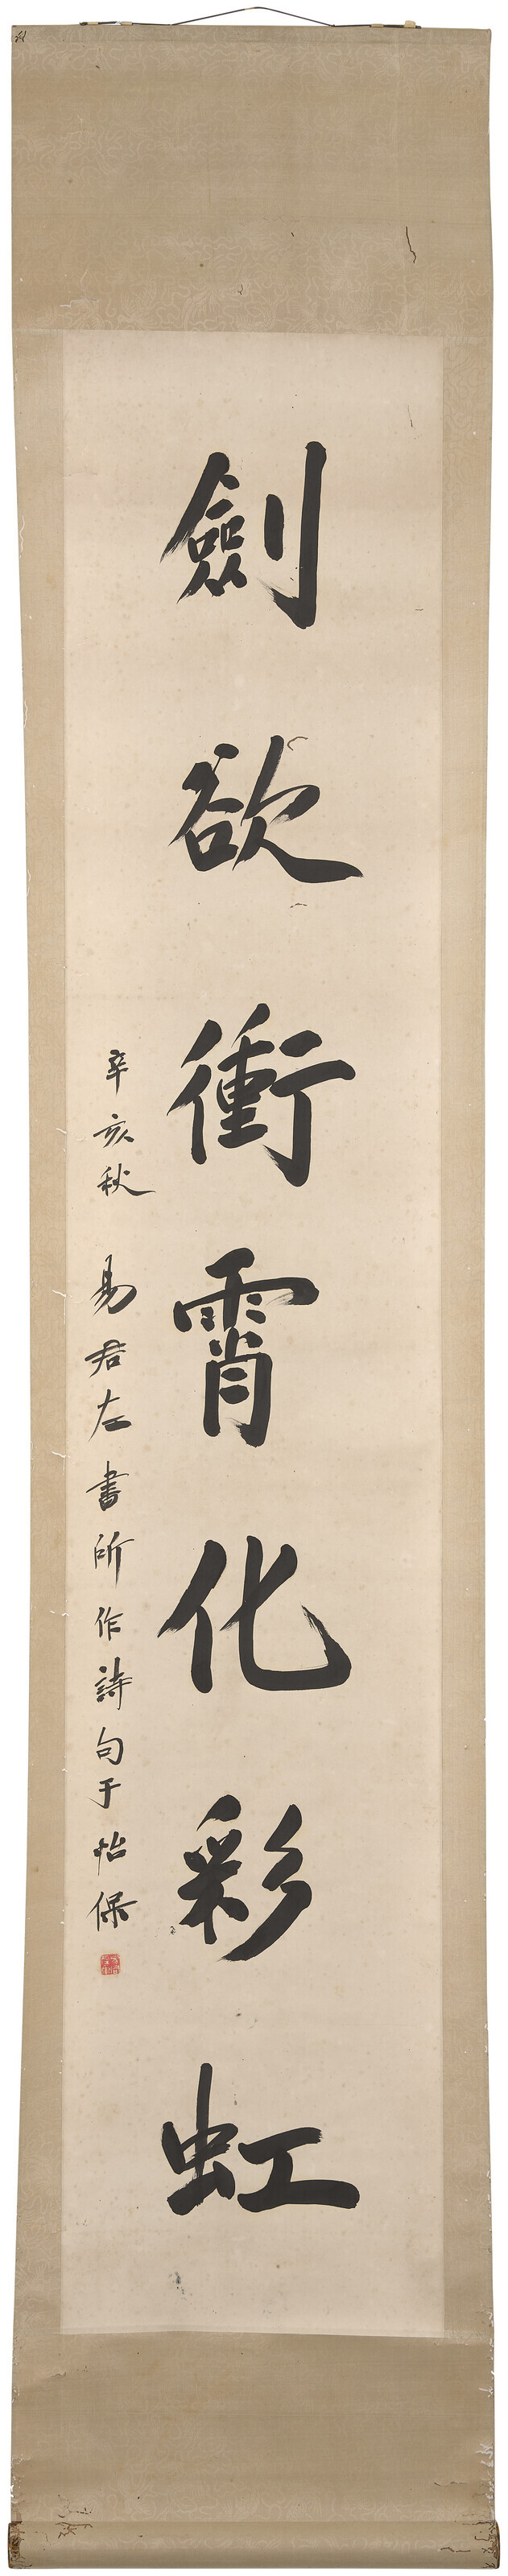 劍欲衝霄化彩虹
辛亥秋 易君左書所作詩句于怡保